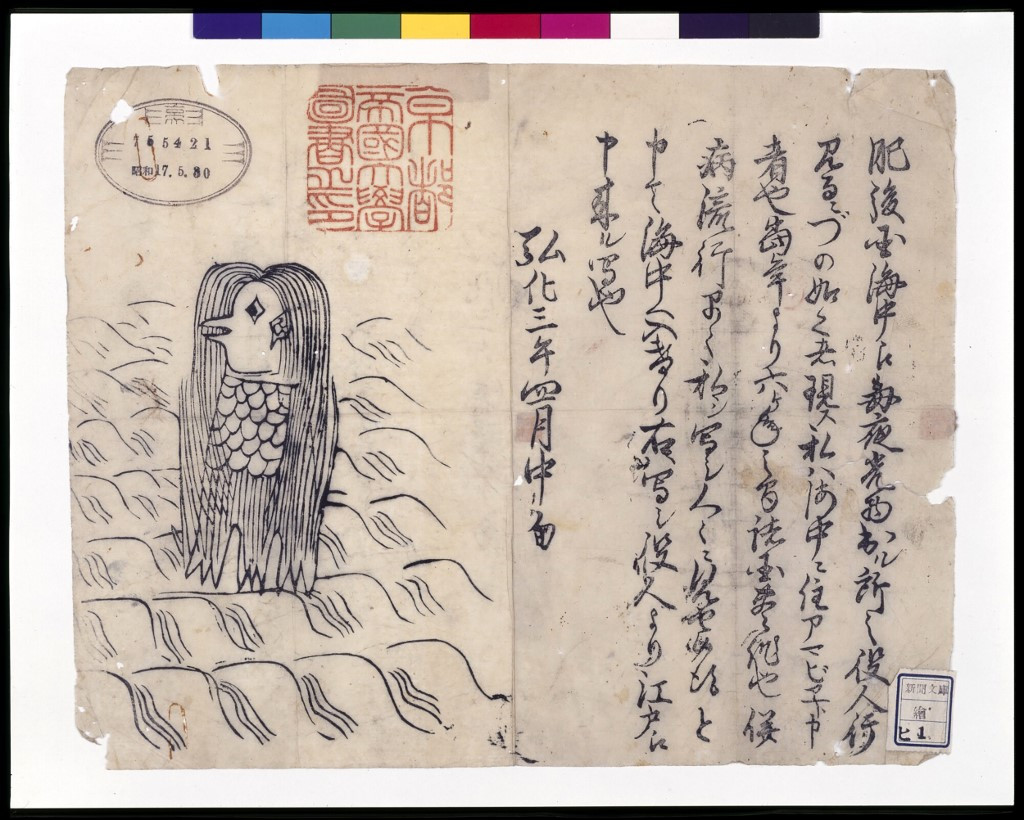 肥後国海中江毎夜光物出ル所之役人行
見るニづの如く者現ス私ハ海中ニ住アマビヱト申
者也當年より六ヶ年之間諸国豊作也併
病流行早々私ヲ写シ人々ニ見セ候得と
申て海中へ入けり右写シ役人より江戸江
申来ル写也
弘化三年四月中旬
京都
帝國大學
圖書之印
昭和17.5.30
新聞文庫
繪
ヒ 1.